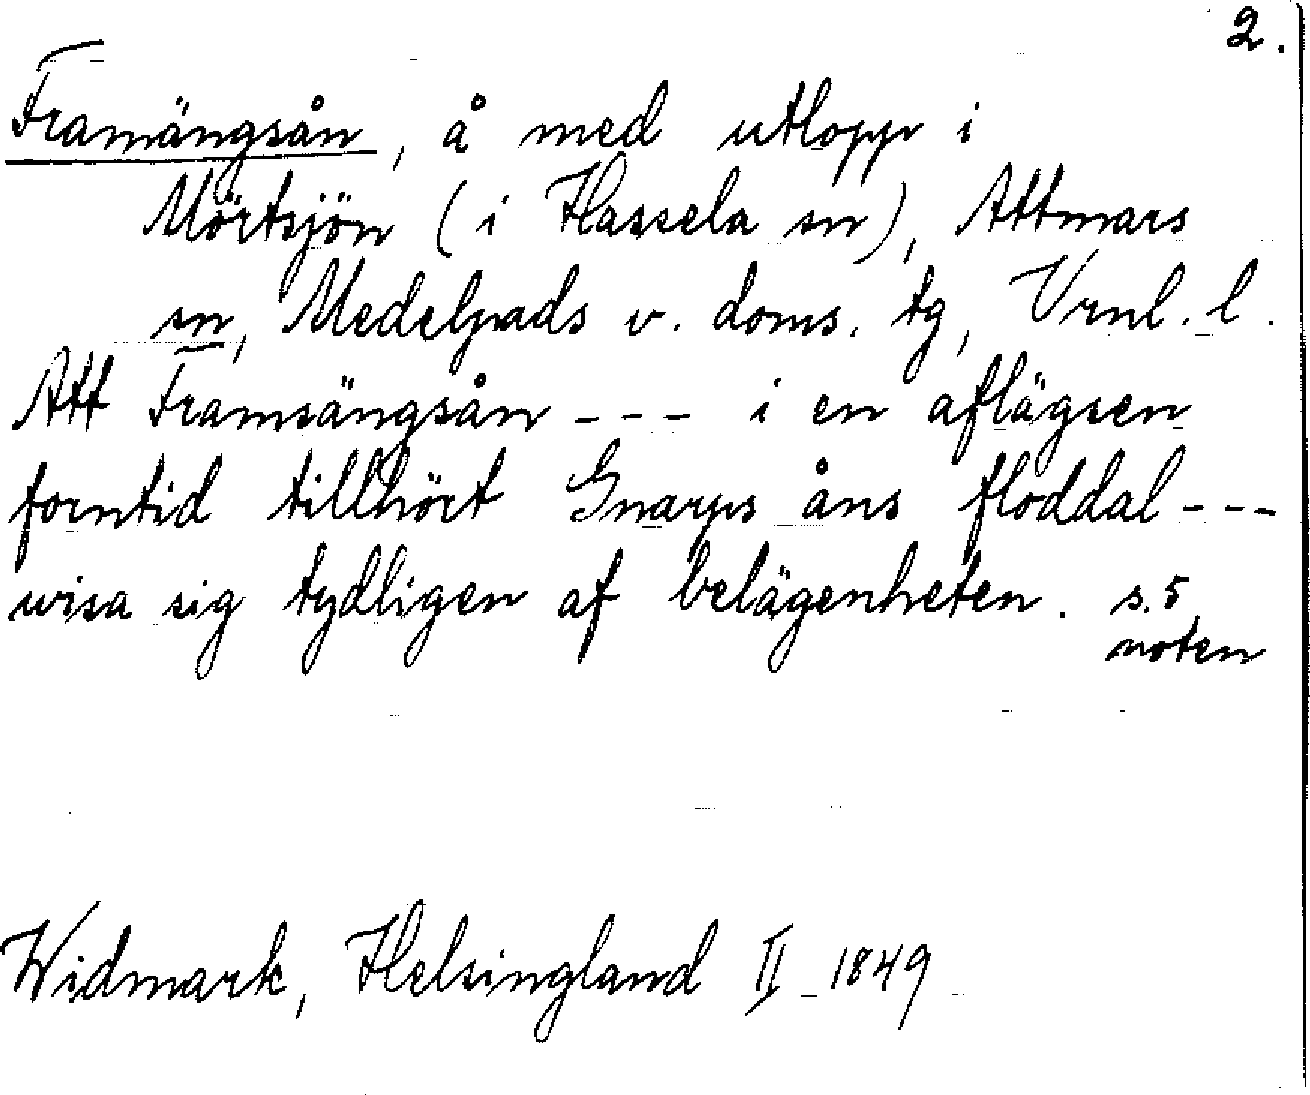 2.
Framängsån, å med utlopp i
Mörtsjön (i Hassela sn), Attmars
sn, Medelpads v. doms. tg, Vrnl. l.
Att Framsängsån --- i en aflägsen
forntid tillhört Gnarps åns floddal ---
wisa sig tydligen af belägenheten. s. 5
noten
Widmark, Helsingland II 1849